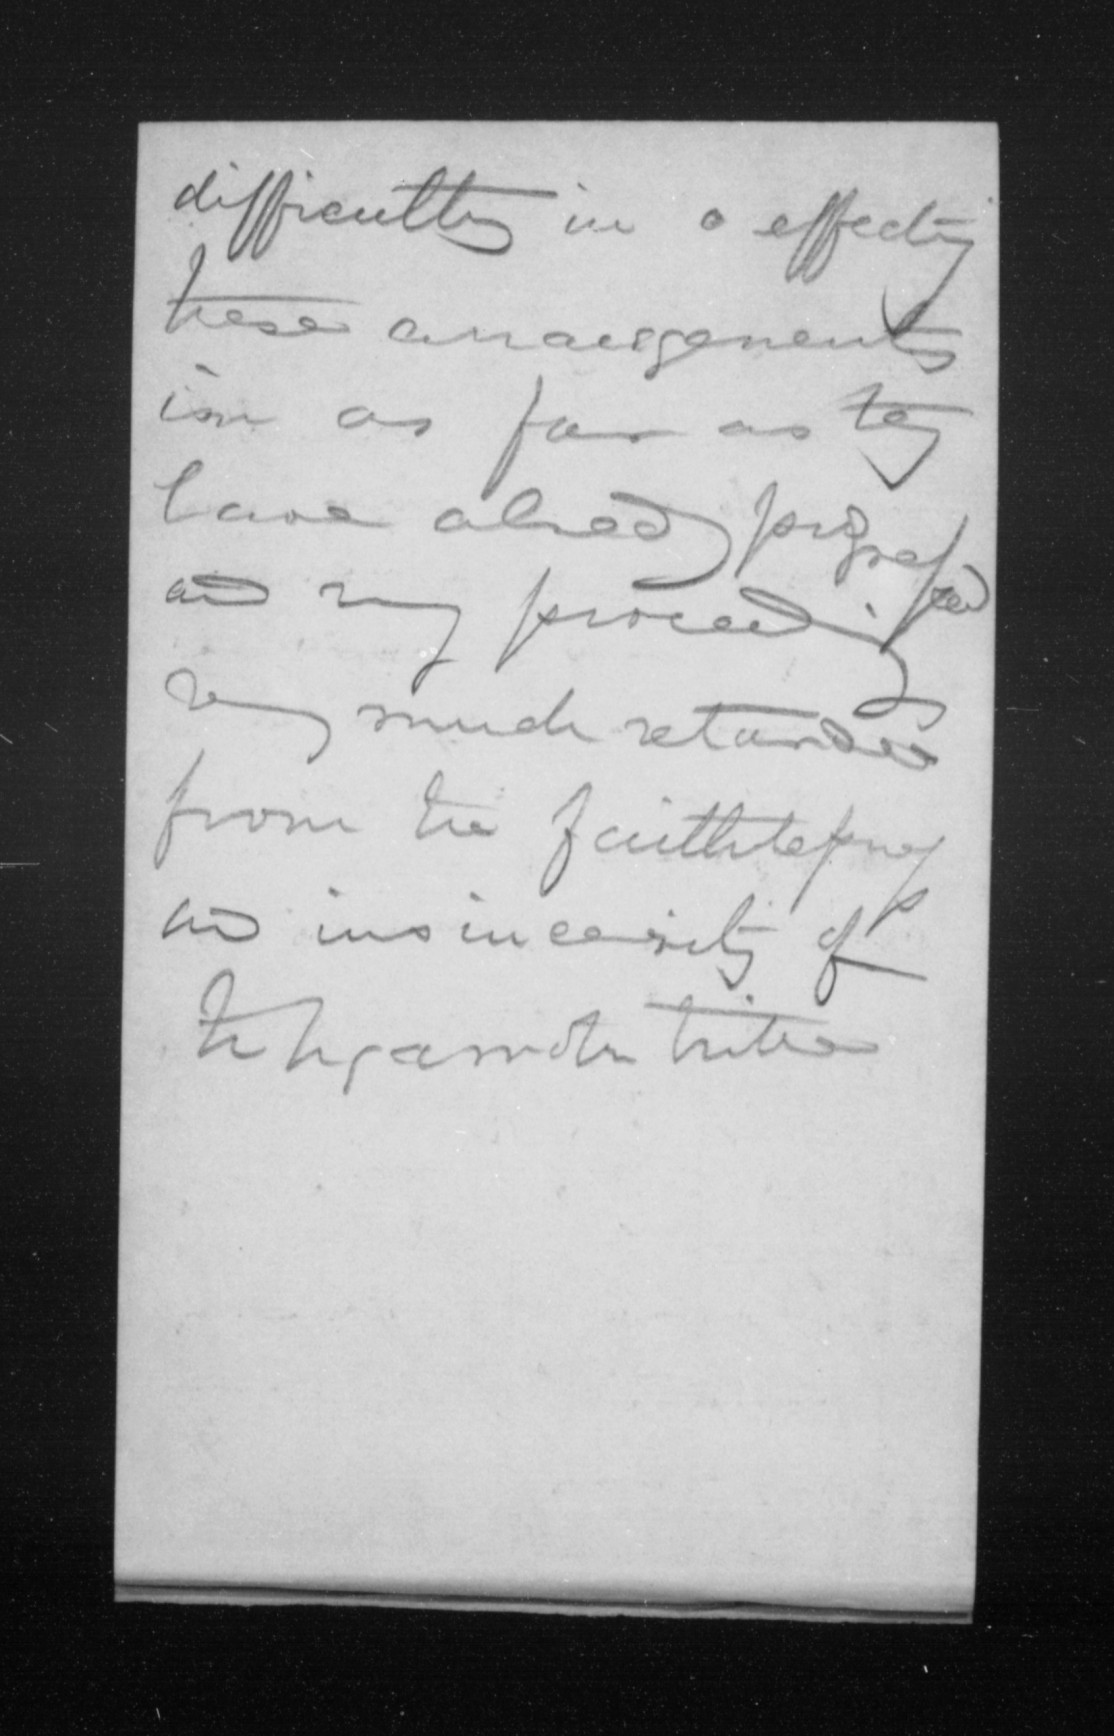 difficulty in effecting
these arrangements
in as far as they
have already progressed
and my proceedings
very much retarded
from the faithlessness
and insincerity of
the tribes